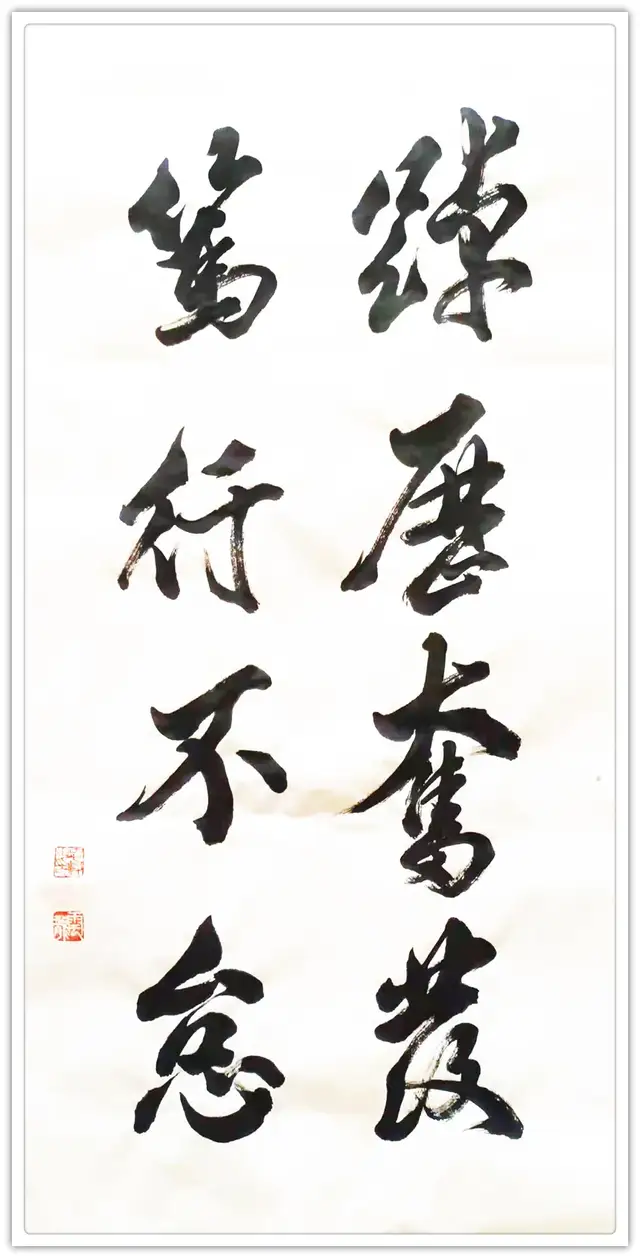 踔歷奮發
篤行不怠